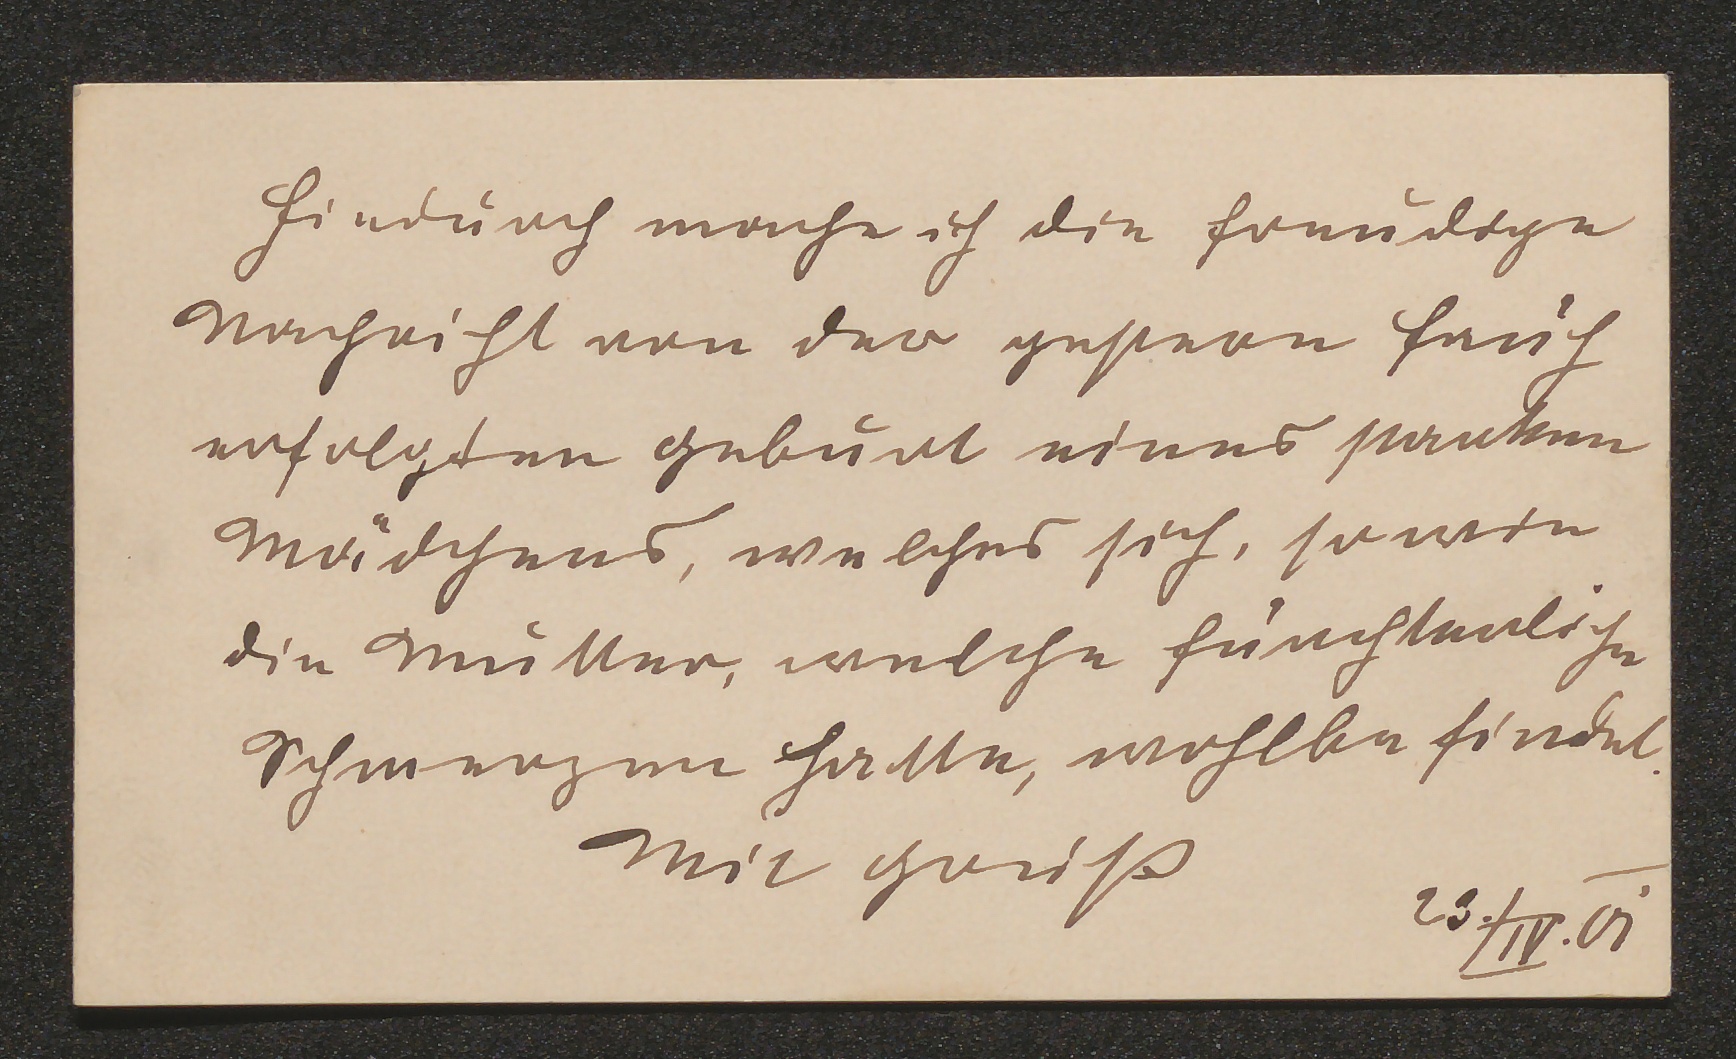 Hiedurch mache ich die freudige
Nachricht von der gestern früh
erfolgten Geburt eines starken
Mädchens, welches sich, sowie
die Mutter, welche fürchterliche
Schmerzen hatte, wohlbefindet.
Mit Gruß
23./IV. 01